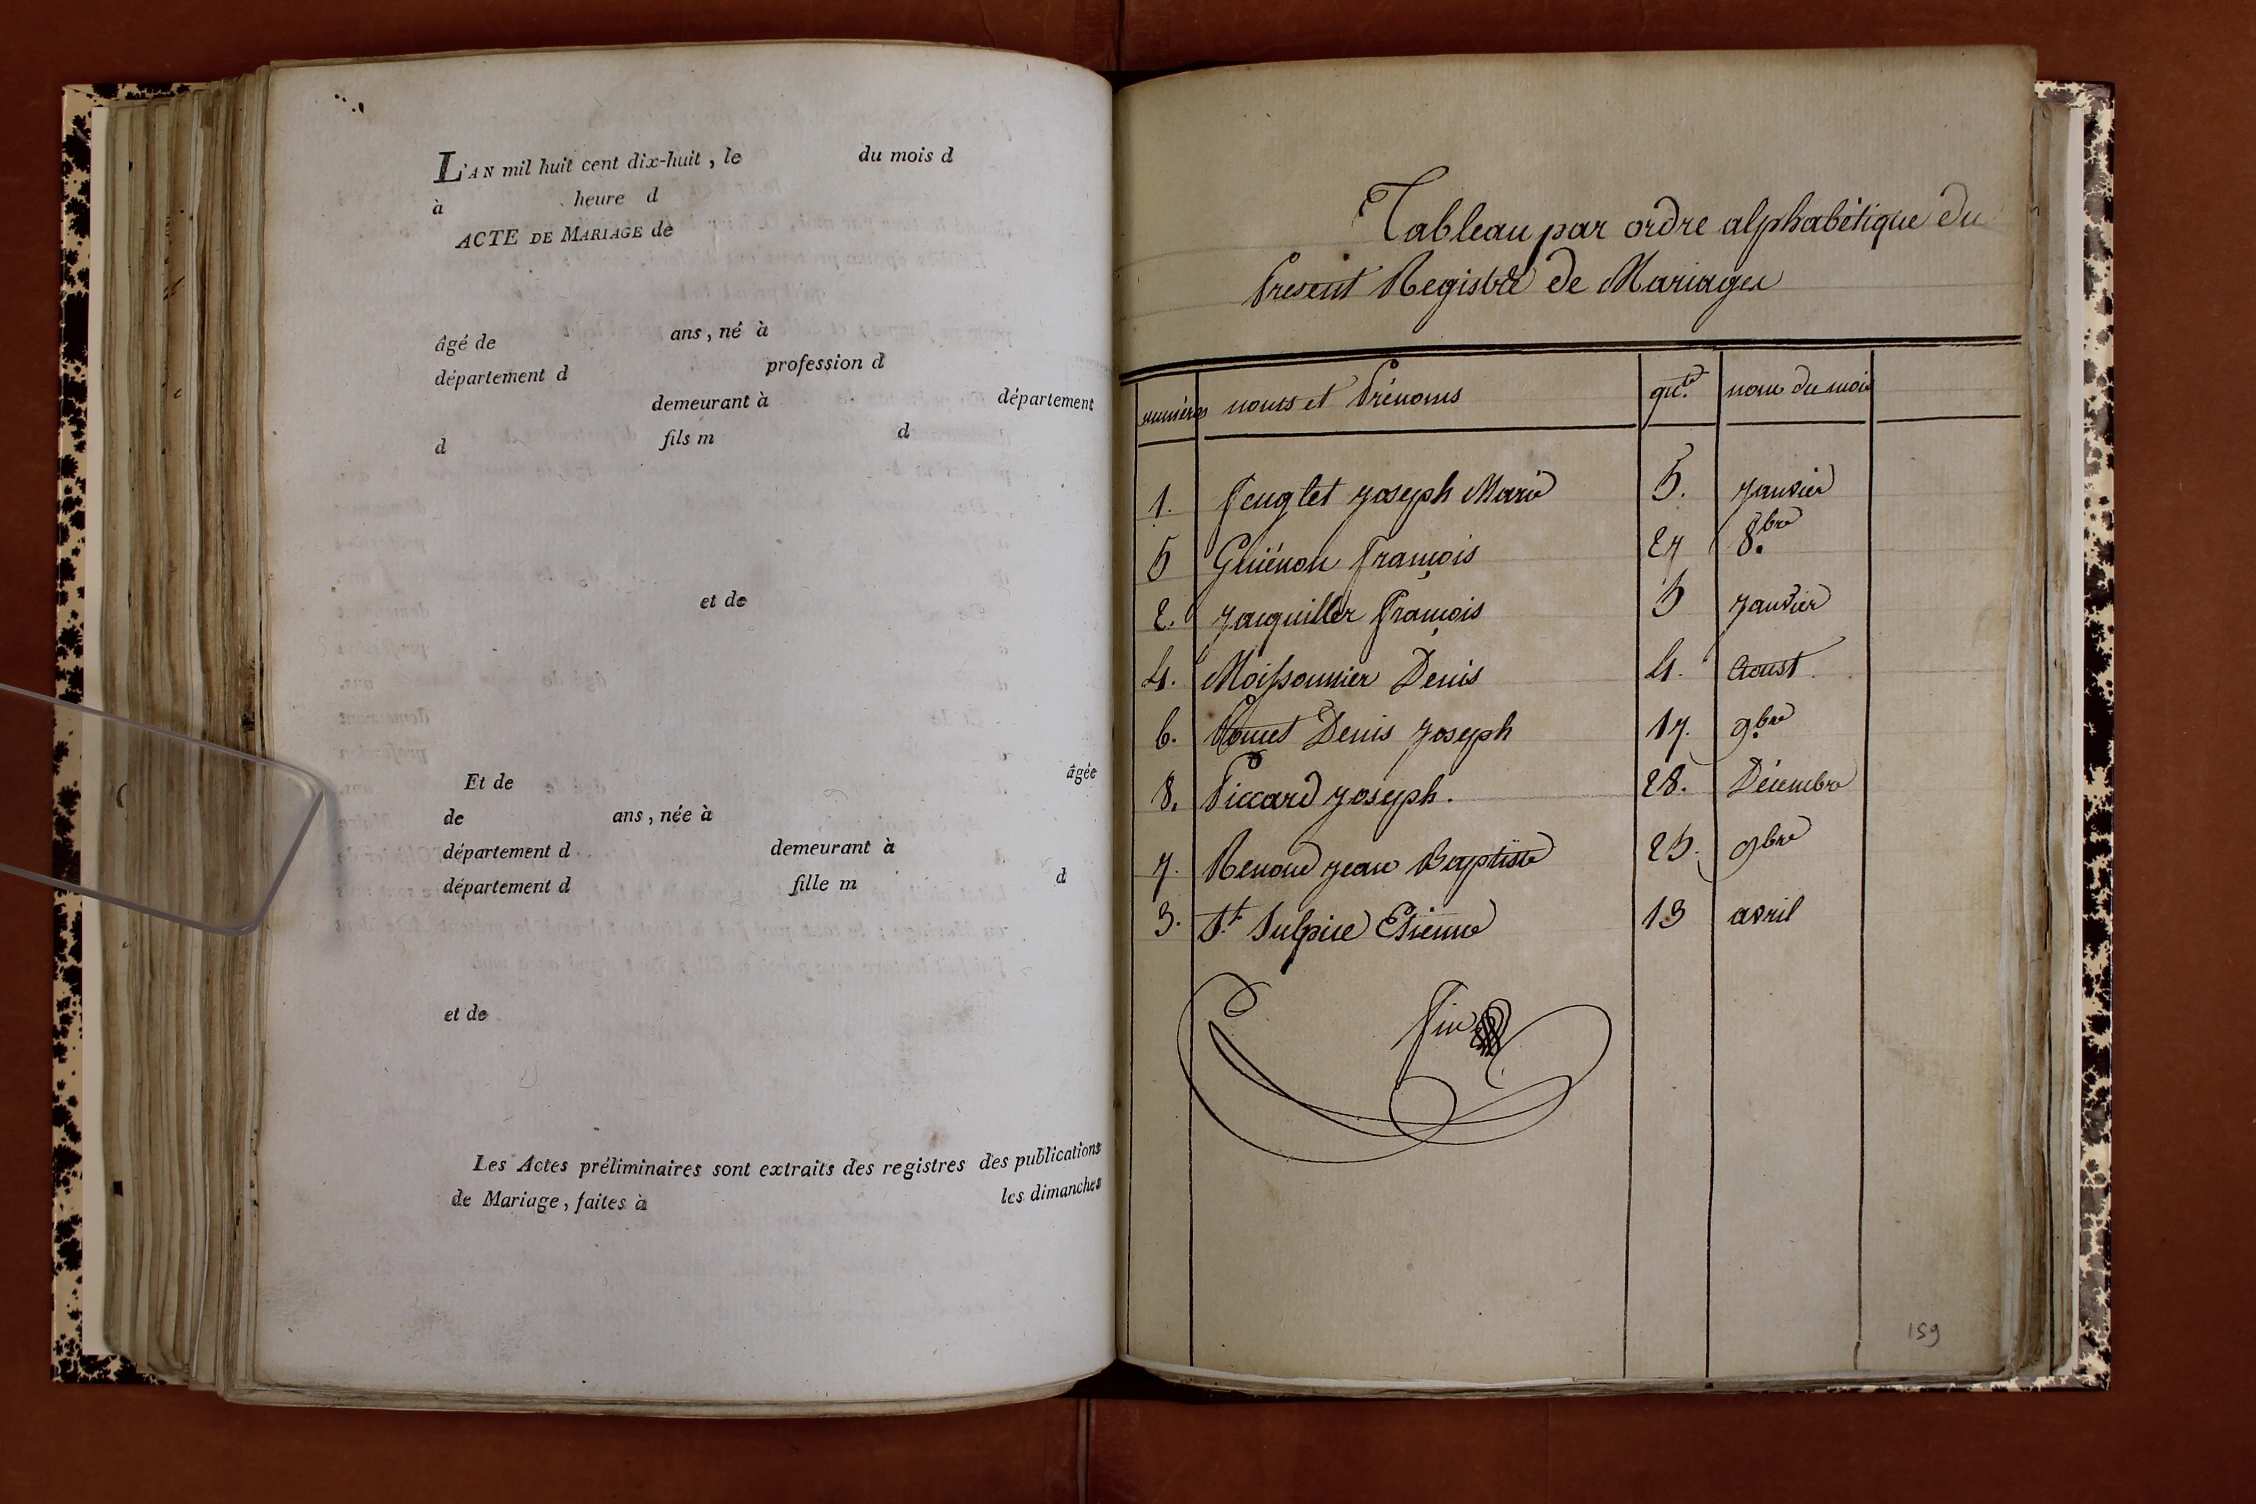 L'AN mil huit cent dix-huit, le du mois d
à heure d
ACTE DE MARIAGE de
âgé de ans, né à
département d profession d
demeurant à département
d fils m d
et de
Et de âgée
de ans, née à
département d demeurant à
département d fille m d
et de
Les Actes préliminaires sont extraits des registres des publications
de Mariage, faites à les dimanches
Tableau par ordre alphabétique du
Present Registre de Mariages
numéros noms et Prénoms qu.te nom du mois
1. Fenglet Joseph Marie 5. Janvier
5 Guienon François 27 8.bre
2. Jacquiller François 5 Janvier
4. Moissonnier Denis 4. Aoust.
6. Denis Joseph 17. 9.bre
8. Piccard Joseph. 28. Décembre
7. Renoud Jean Baptiste 25. 9bre
3. S.t Sulpice Etienne 13 avril
Fin
159